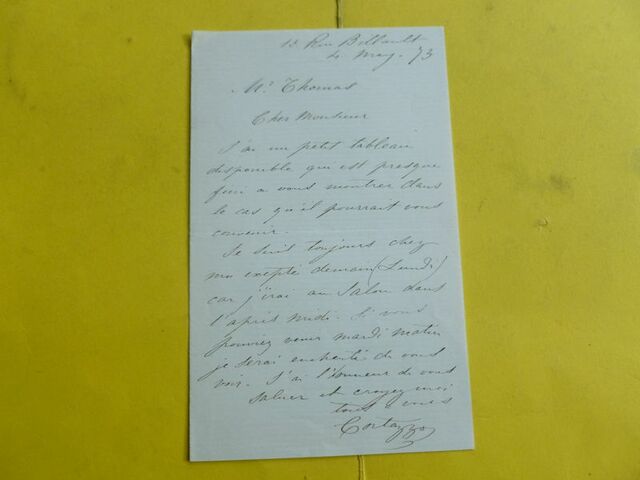 13 Rue Billault
4 May. 73
Mr. Thomas
Cher Monsieur
J'ai un petit tableau
disponible qui est presque
fini a vous montrer dans
le cas qu'il pourrait vous
convenir.
Je suis toujours chez
moi exepté demain (Lundi)
car j'irai au Salon dans
l'après midi. Si vous
pouviez venir mardi matin
je serai enchanté de vous
voir. J'ai l'honneur de vous
saluer et croyez moi
tout a vous
Cortazzo